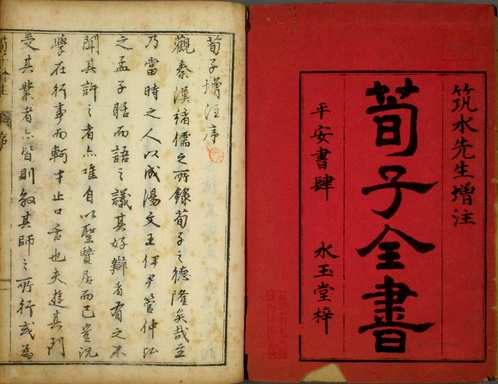 筑水先生增注
荀子全書
平安書肆 水玉堂梓
荀子增注序
觀秦漢諸儒之所錄荀子之德隆矣哉
乃當時之人以成湯文王伊尹管仲
之孟子而語之議其好辯者有之不
聞其訐之者亦唯自以聖賢居而已豈況
學在行事而軻才止口言也夫遊其門
受其業者亦皆則效其師之所行或為